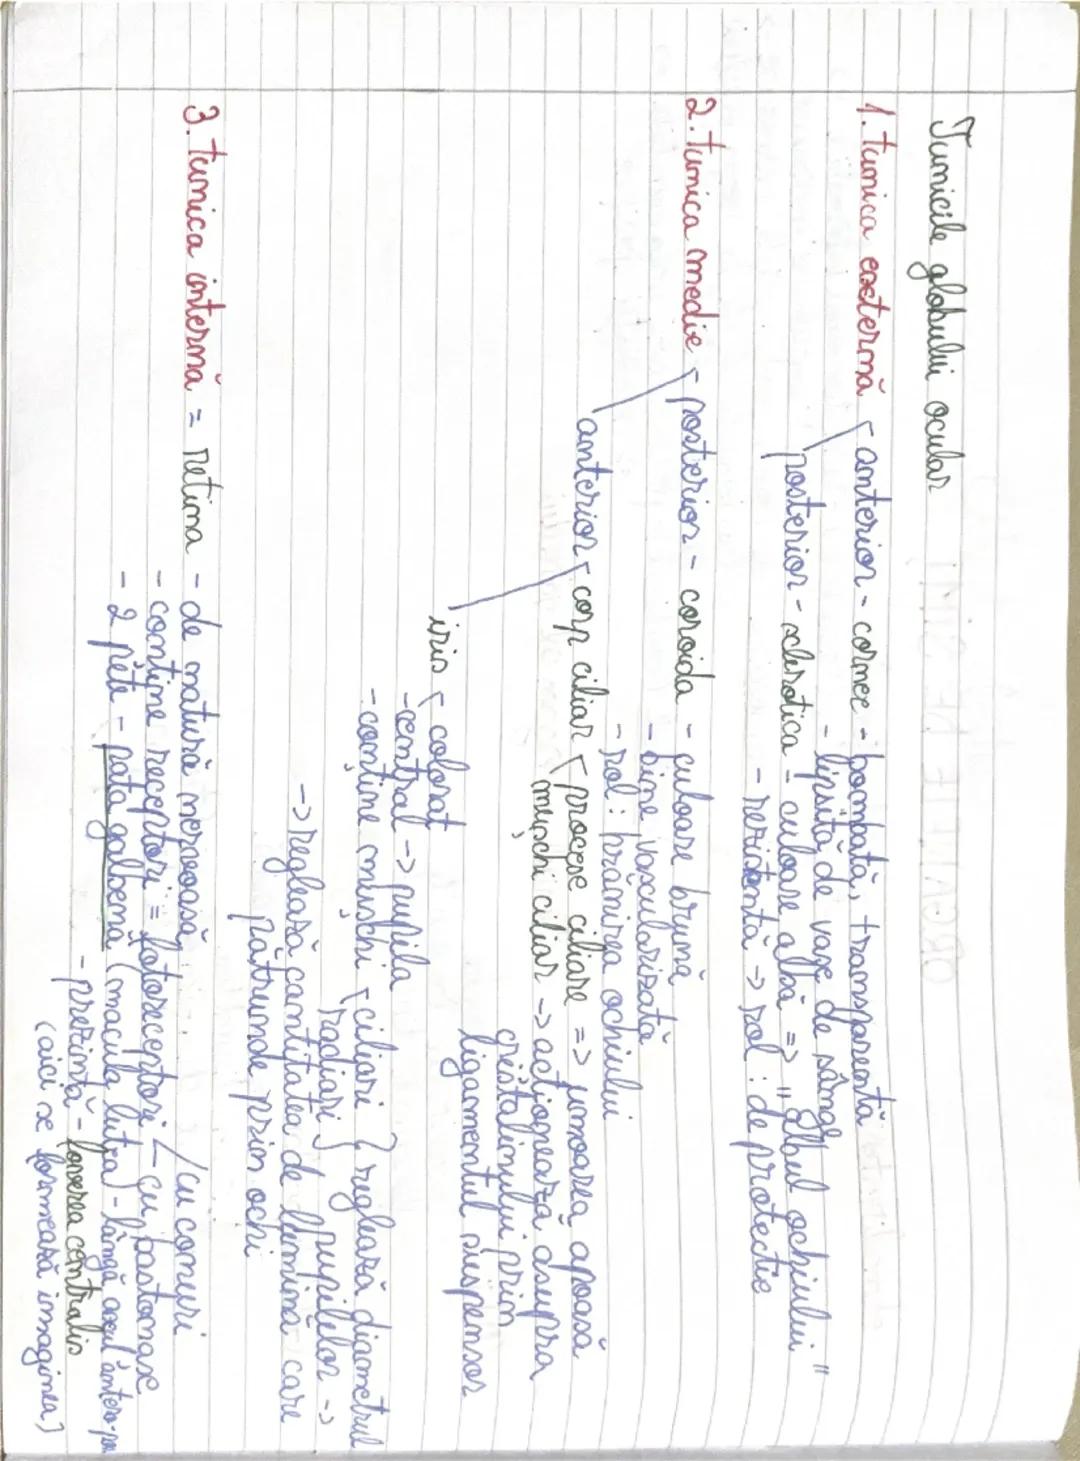 Tunicile globului ocular
1. tunica externă - anterior - cornee - bombată, transparentă
- lipsită de vase de sânge
posterior - sclerotica - culoare albă => "albul ochiului"
- rezistentă -> rol : de protectie
2. tunica medie - posterior - coroida - culoare brună
- bine vascularizată
- rol : hrănirea ochiului
anterior - corp ciliar - procese ciliare => umoarea apoasă
mușchi ciliar -> acționează asupra
cristalinului prin
ligamentul suspensor
iris - colorat
- central -> pupila
- conține mușchi - ciliari } reglează diametrul
radiari } pupilelor ->
-> reglează cantitatea de lumină care
pătrunde prin ochi
3. tunica internă = retina - de natură nervoasă
- conține receptori = fotoreceptori - cu conuri
- cu bastonașe
- 2 pete - pata galbenă (macula lutea) - lângă axul antero-
- prezintă - foveea centralis
(aici se formează imaginea)